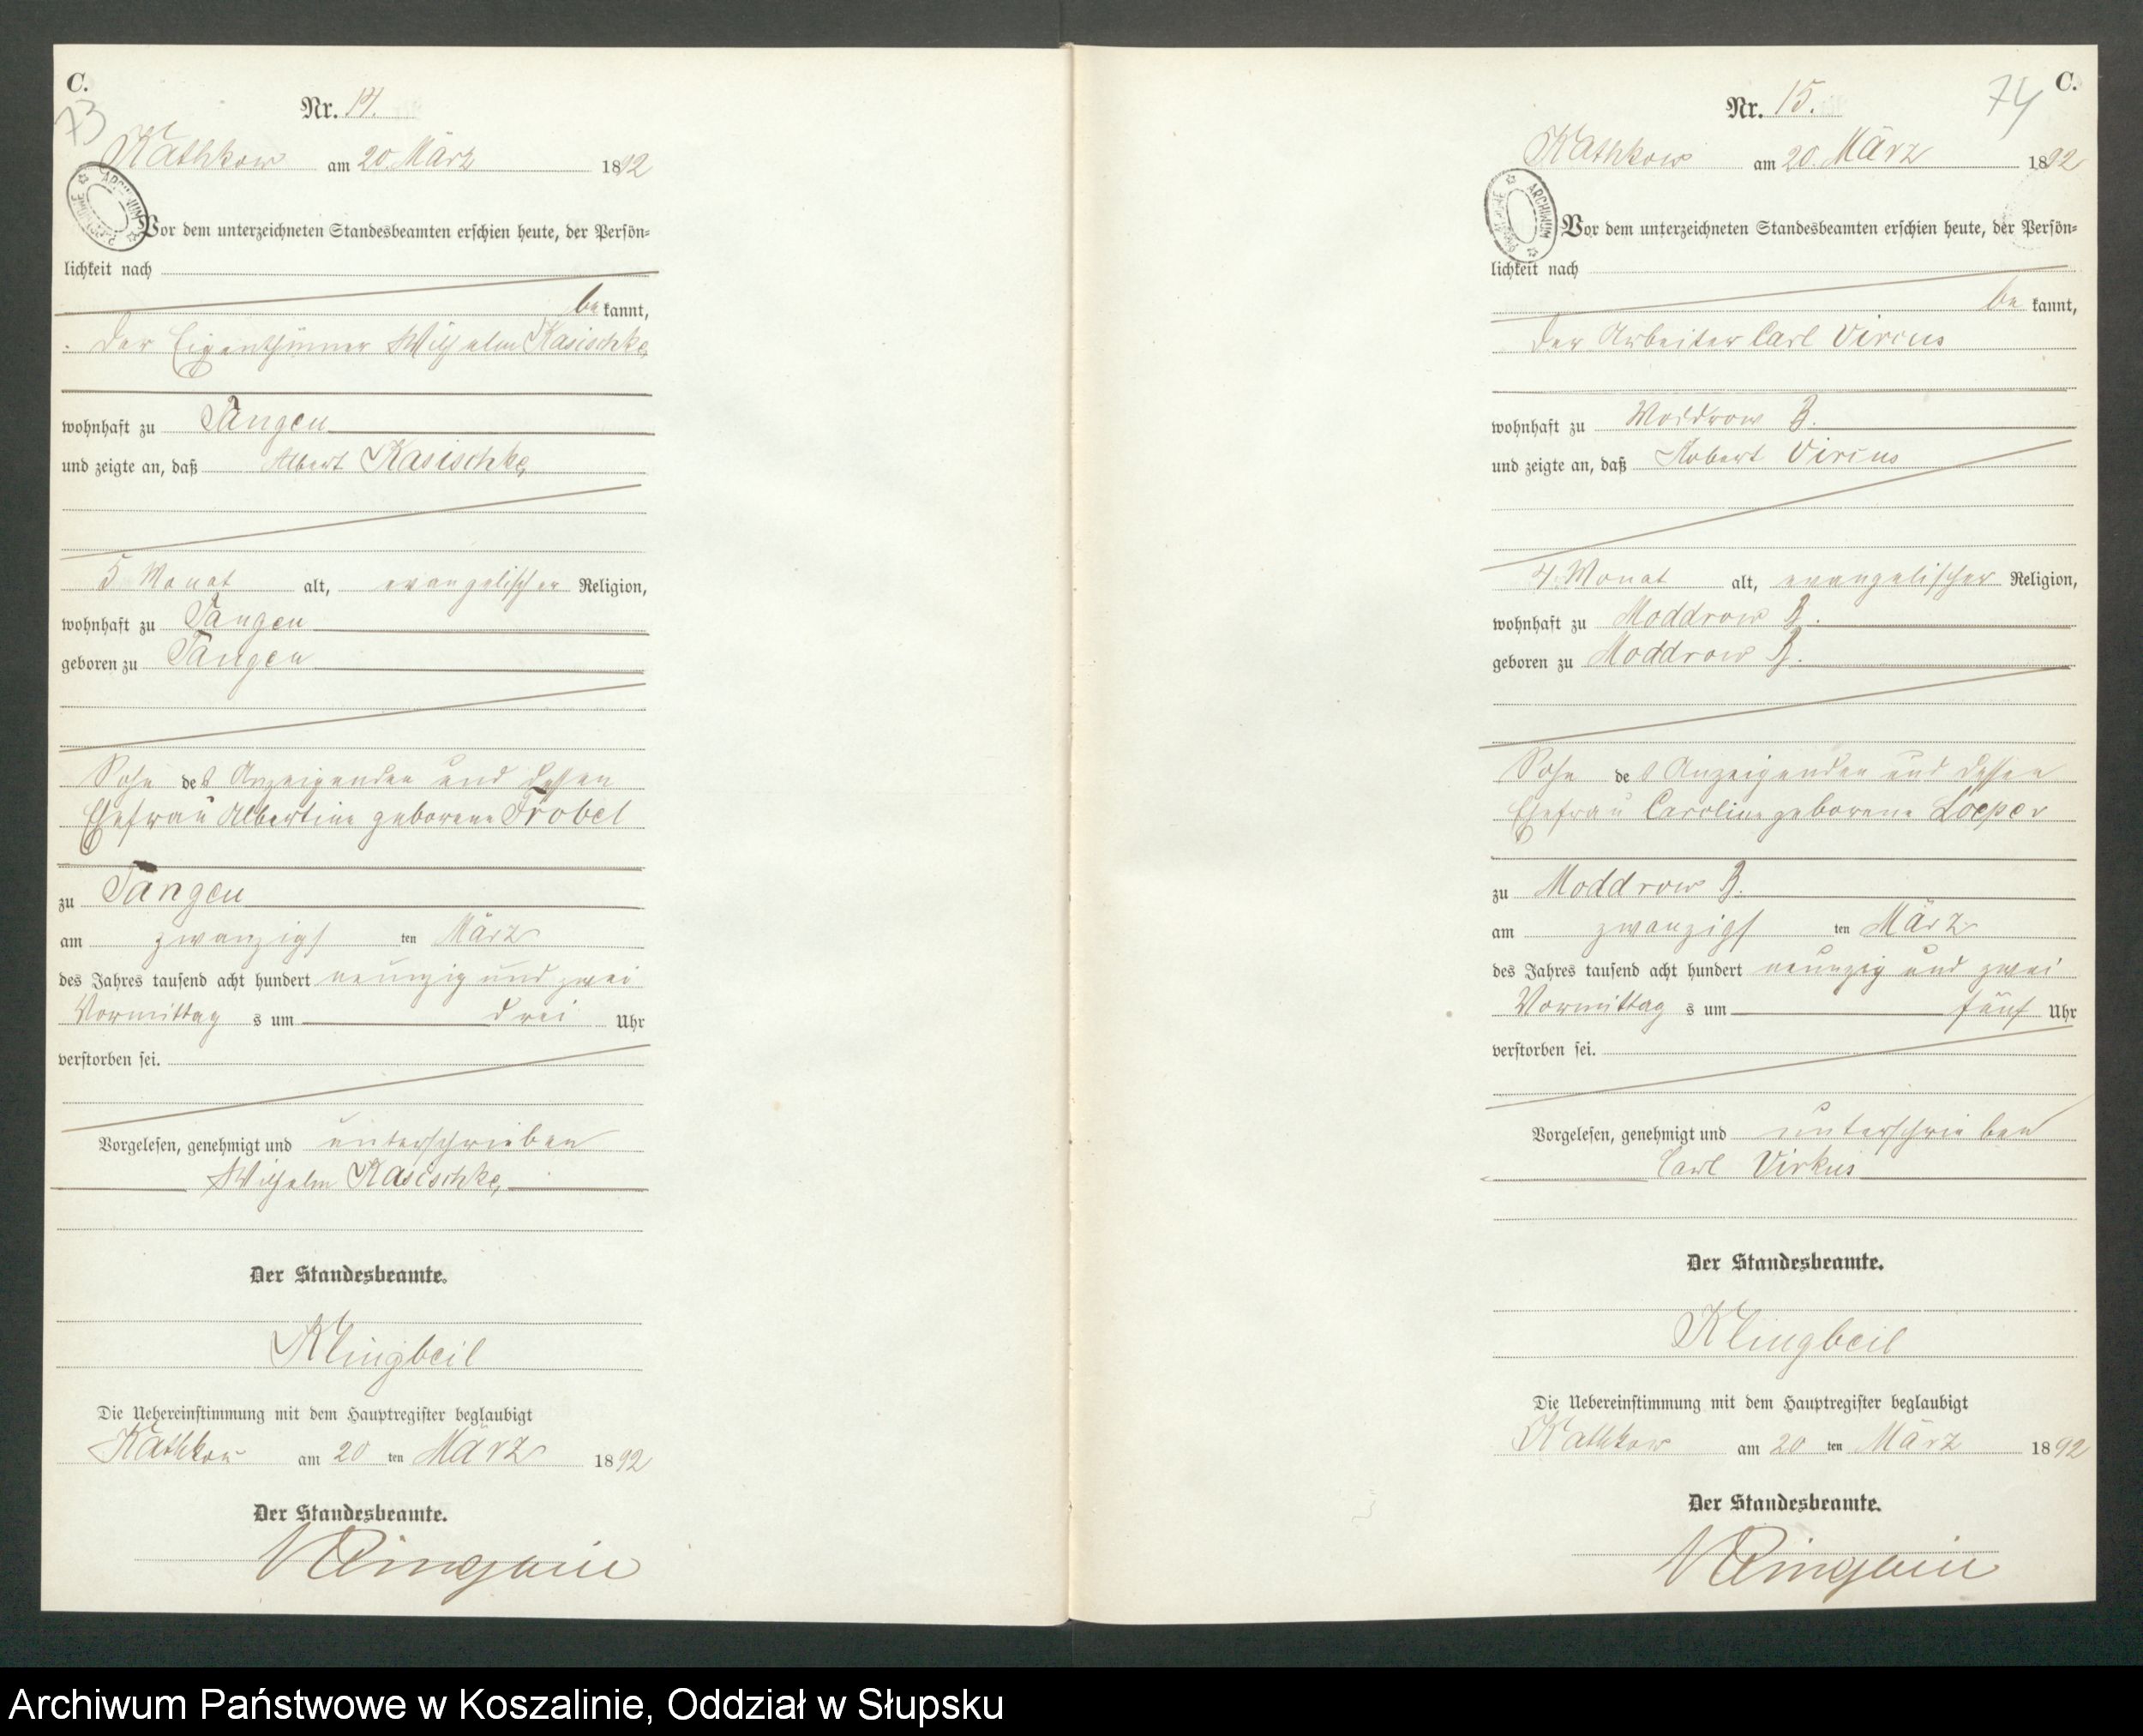 C.
73
Nr. 14.
Kathkow am 20. März 1892
Vor dem unterzeichneten Standesbeamten erschien heute, der Persön=
lichkeit nach
be kannt,
der Eigenthümer Wilhelm Kasischke
wohnhaft zu Tangen
und zeigte an, daß Albert Kasischke
5 Monat alt, evangelischer Religion,
wohnhaft zu Tangen
geboren zu Tangen
Sohn des Anzeigenden und dessen
Ehefrau Albertine geborene Frobel
zu Tangen
am zwanzigs ten März
des Jahres tausend acht hundert neunzig und zwei
Vormittag s um drei Uhr
verstorben sei.
Vorgelesen, genehmigt und unterschrieben
Wilhelm Kasischke
Der Standesbeamte.
Klingbeil
Die Uebereinstimmung mit dem Hauptregister beglaubigt
Kathkow am 20 ten März 1892
Der Standesbeamte.
Klingbeil
C.
74
Nr. 15.
Kathkow am 20. März 1892
ARCHIWUM
Vor dem unterzeichneten Standesbeamten erschien heute, der Persön=
lichkeit nach
be kannt,
der Arbeiter Carl Vircus
wohnhaft zu Moddrow B.
und zeigte an, daß Robert Vircus
4 Monat alt, evangelischer Religion,
wohnhaft zu Moddrow B.
geboren zu Moddrow B.
Sohn des Anzeigenden und dessen
Ehefrau Caroline geborene Loeper
zu Moddrow B.
am zwanzigs ten März
des Jahres tausend acht hundert neunzig und zwei
Vormittag s um fünf Uhr
verstorben sei.
Vorgelesen, genehmigt und unterschrieben
Carl Virkus
Der Standesbeamte.
Klingbeil
Die Uebereinstimmung mit dem Hauptregister beglaubigt
Kathkow am 20 ten März 1892
Der Standesbeamte.
Klingbeil
Archiwum Państwowe w Koszalinie, Oddział w Słupsku